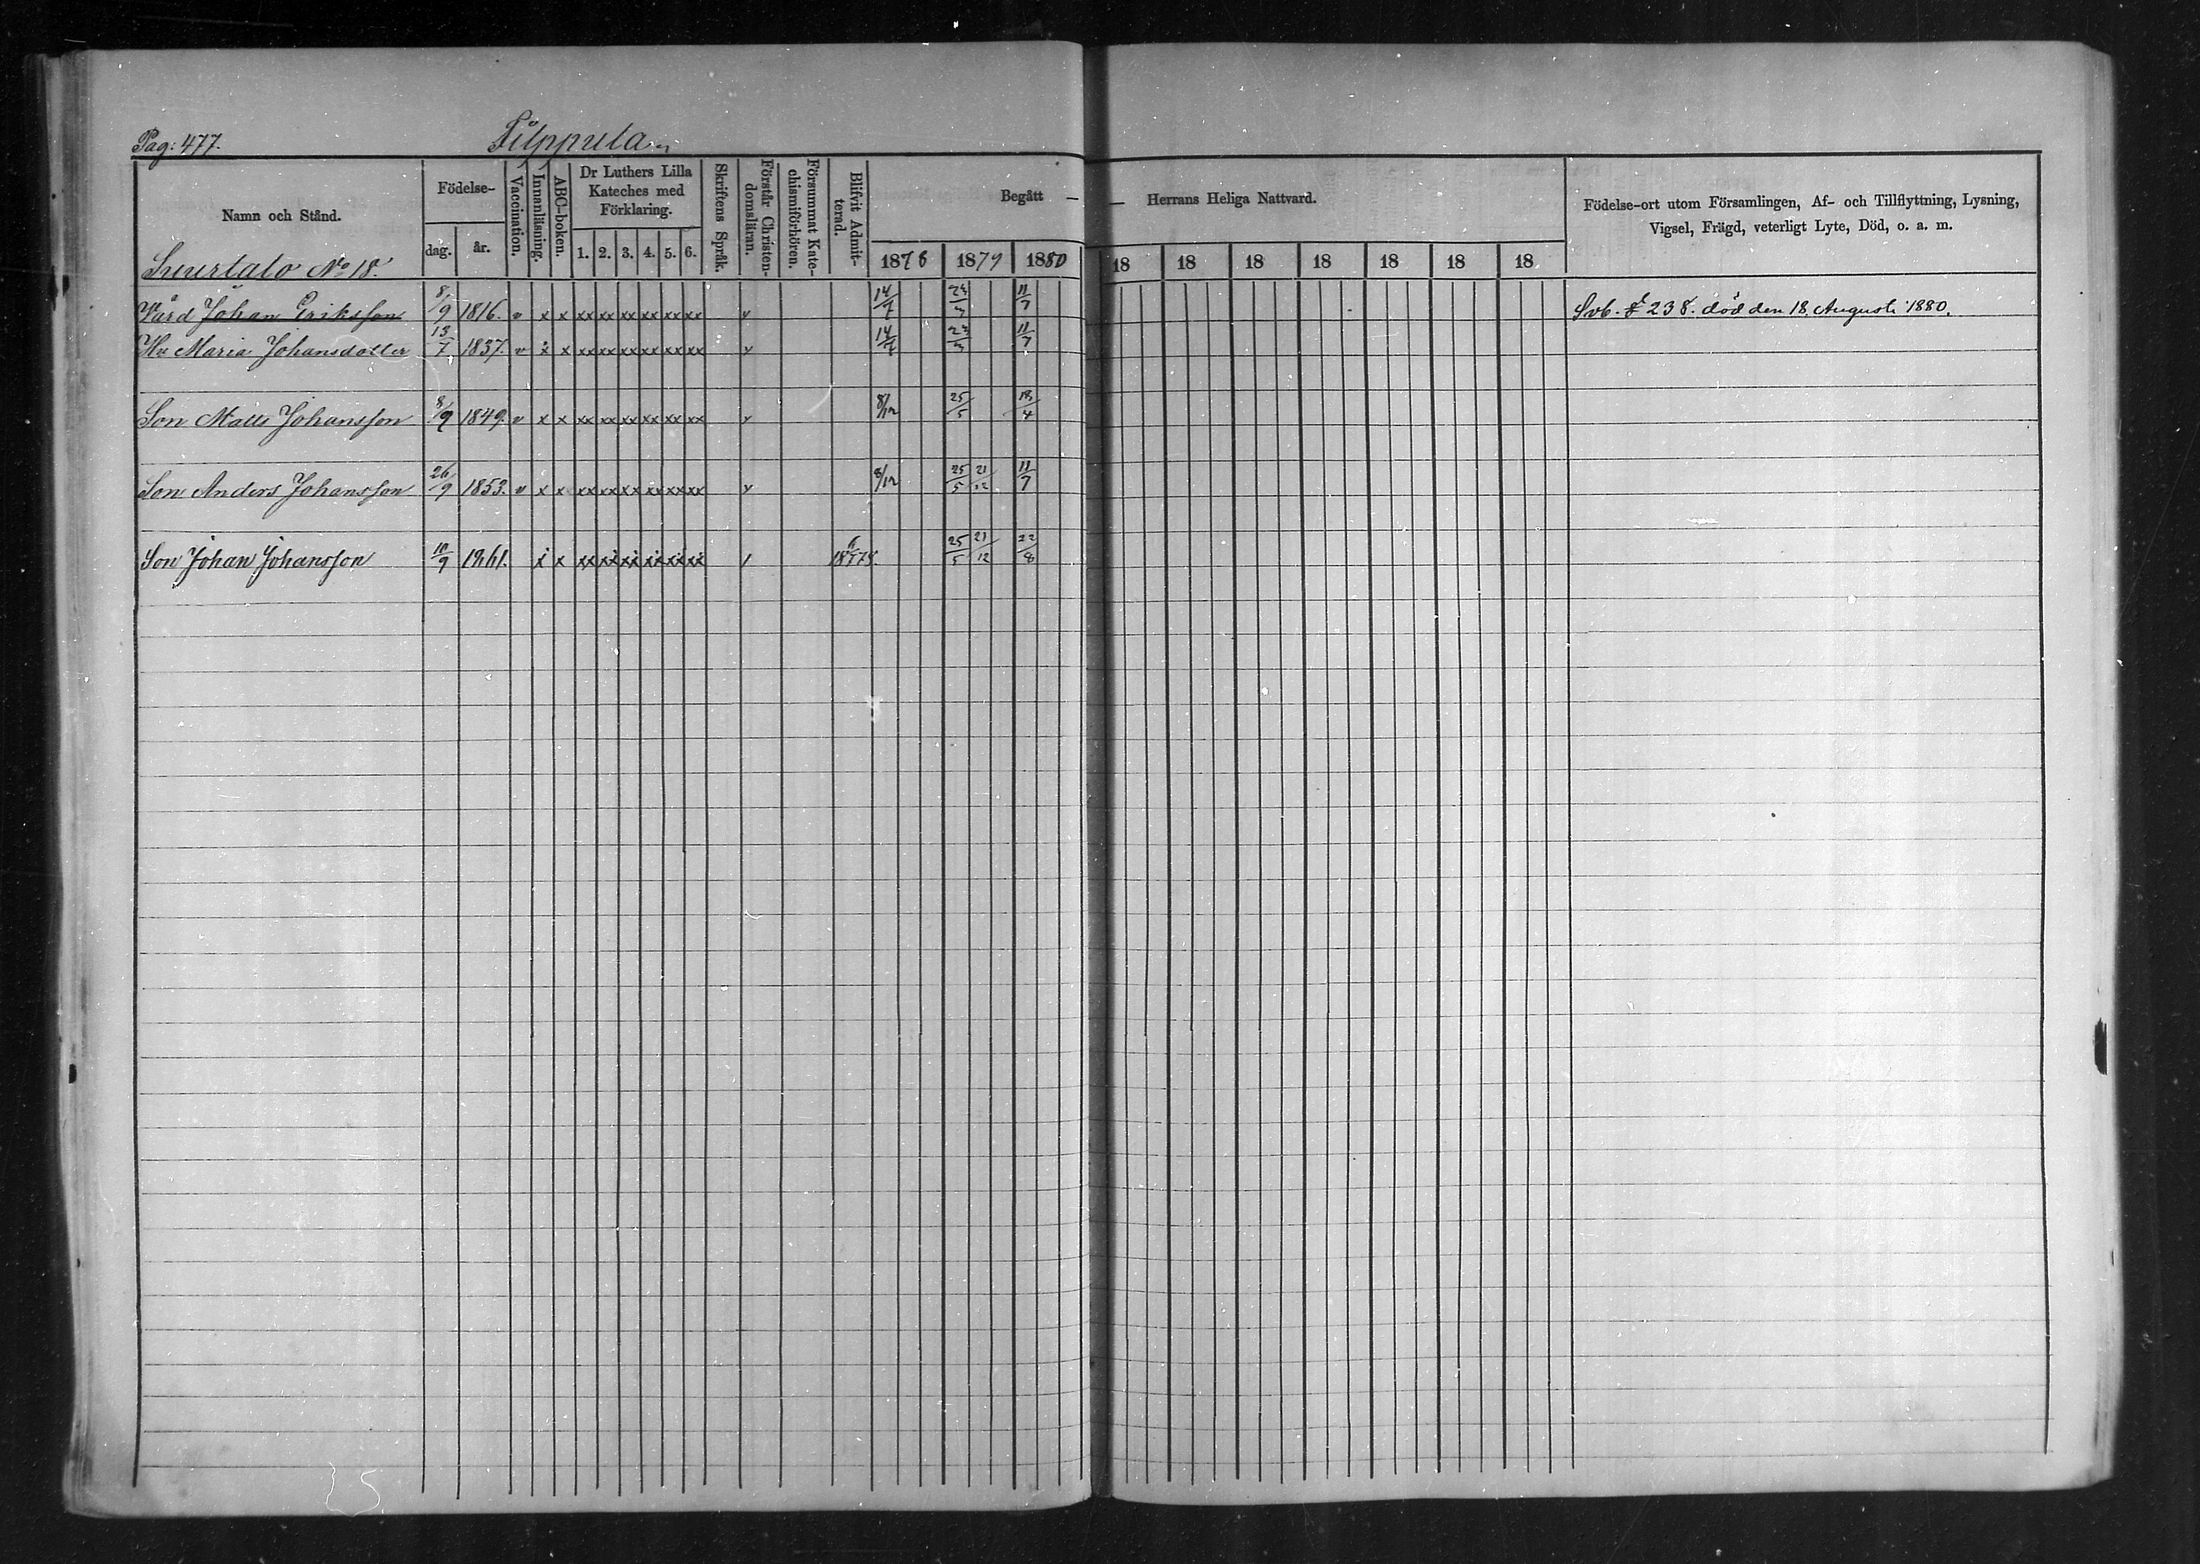 Pag: 477.
Filppula
Namn och Stånd.
Födelse-
dag.
år.
Vaccination.
Innanläsning.
ABC-boken.
Dr Luthers Lilla
Kateches med
Förklaring.
1. 2. 3. 4. 5. 6.
Skriftens Språk.
Förstår Christen-
domsläran.
Försummat Kate-
chismiförhören.
Blifvit Admit-
terad.
Begått — — Herrans Heliga Nattvard.
1878 1879 1880 18 18 18 18 18 18 18
Födelse-ort utom Församlingen, Af- och Tillflyttning, Lysning,
Vigsel, Frägd, veterligt Lyte, Död, o. a. m.
No 18.
Johan Eriksson 8/9 1816. v x x xx xx xx xx xx xx v 14/7 11/7 238. död den 18 Augusti 1880.
Hu Maria Johansdotter 13/7 1837. v x x xx xx xx xx xx xx v 14/7 11/7
Son Matts Johansson 8/9 1849. v x x xx xx xx xx xx xx v 8/12 25/5 18/4
Son Anders Johansson 26/9 1853. v x x xx xx xx xx xx xx v 8/12 25/5 21/12 11/7
Son Johan Johansson 10/9 1861. x x xx xx xx xx xx xx 25/5 21/12 22/8